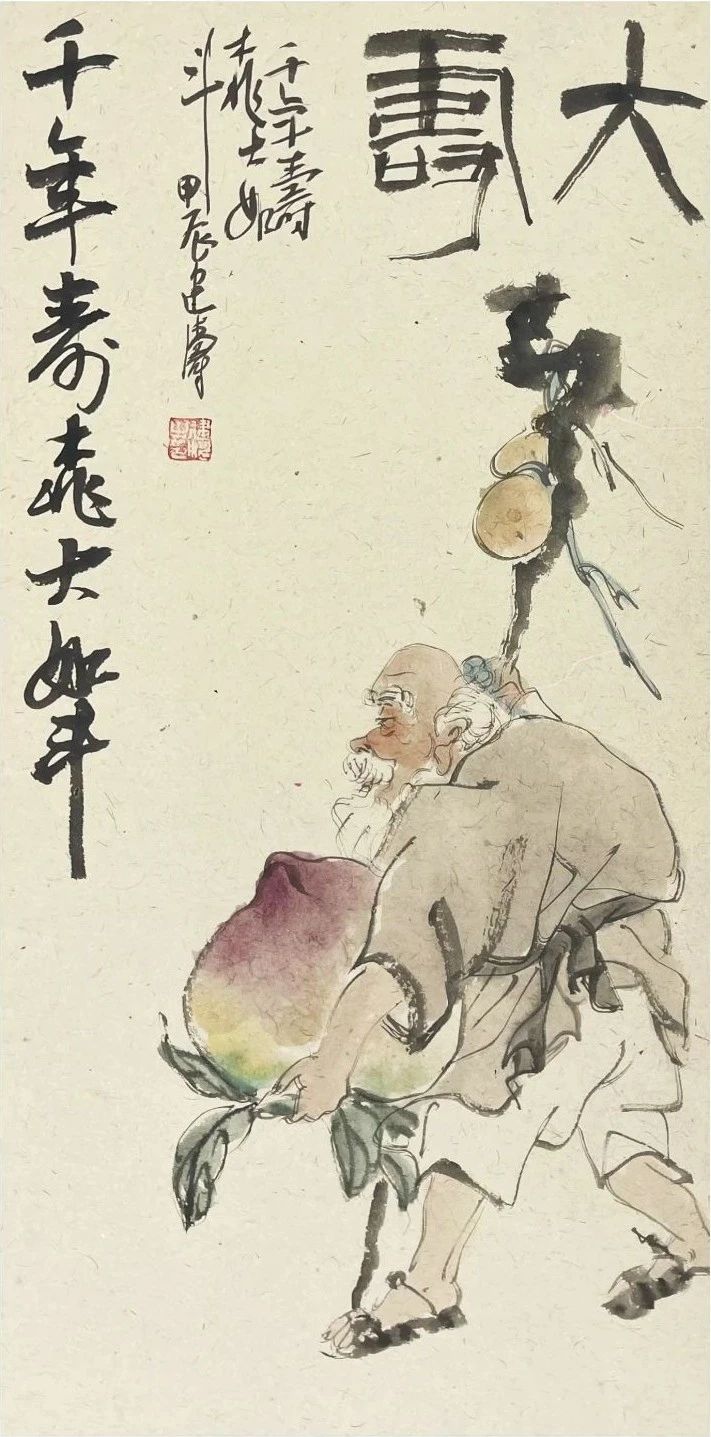 大壽
千年壽
桃大如
斗 甲辰建濤
千年寿桃大如斗